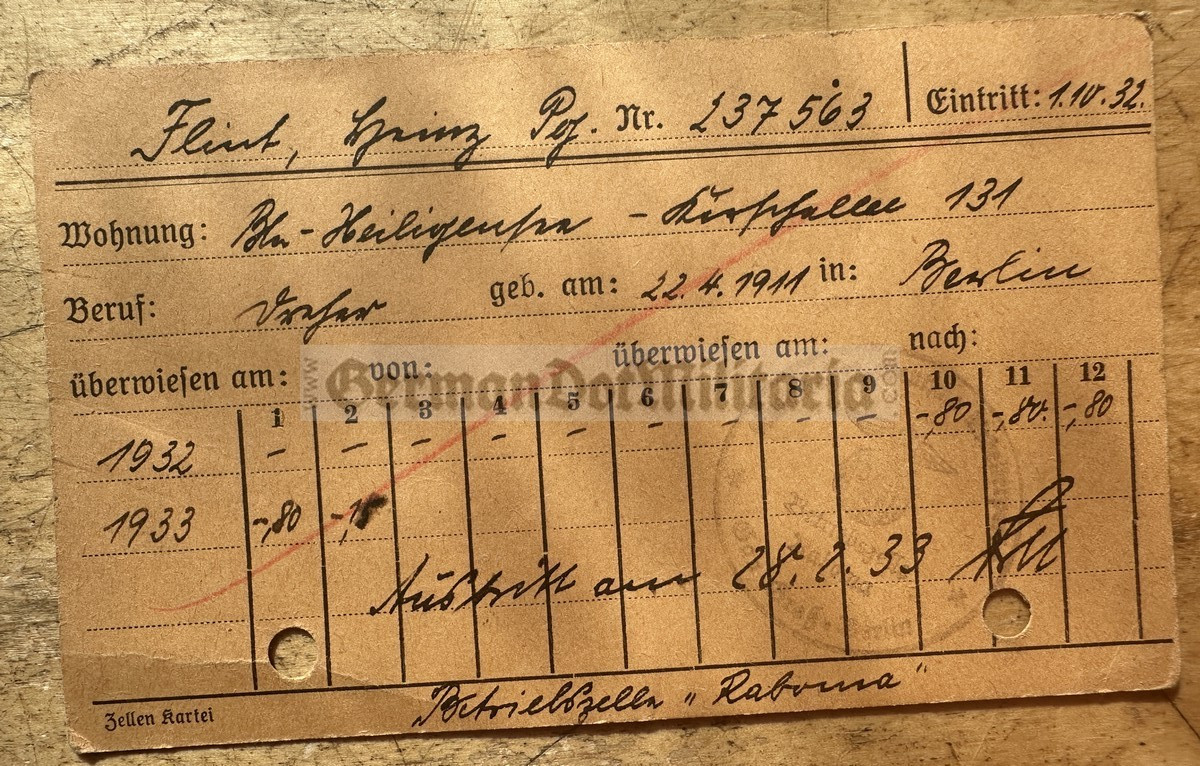 Flint, Heinz Pg. Nr. 237563 Eintritt: 1.10.32.
Wohnung: Bln-Heiligensee - Kirschallee 131
Beruf: Dreher geb. am: 22.4.1911 in: Berlin
überwiesen am: von: überwiesen am: nach:
www.GermanDotMilitaria.com
1 2 3 4 5 6 7 8 9 10 11 12
1932 - - - - - - - - - -,80 -,80. -,80
1933 -,80
Austritt am 28.2.33
Berlin
Betriebszelle „Raboma"
Zellen Kartei